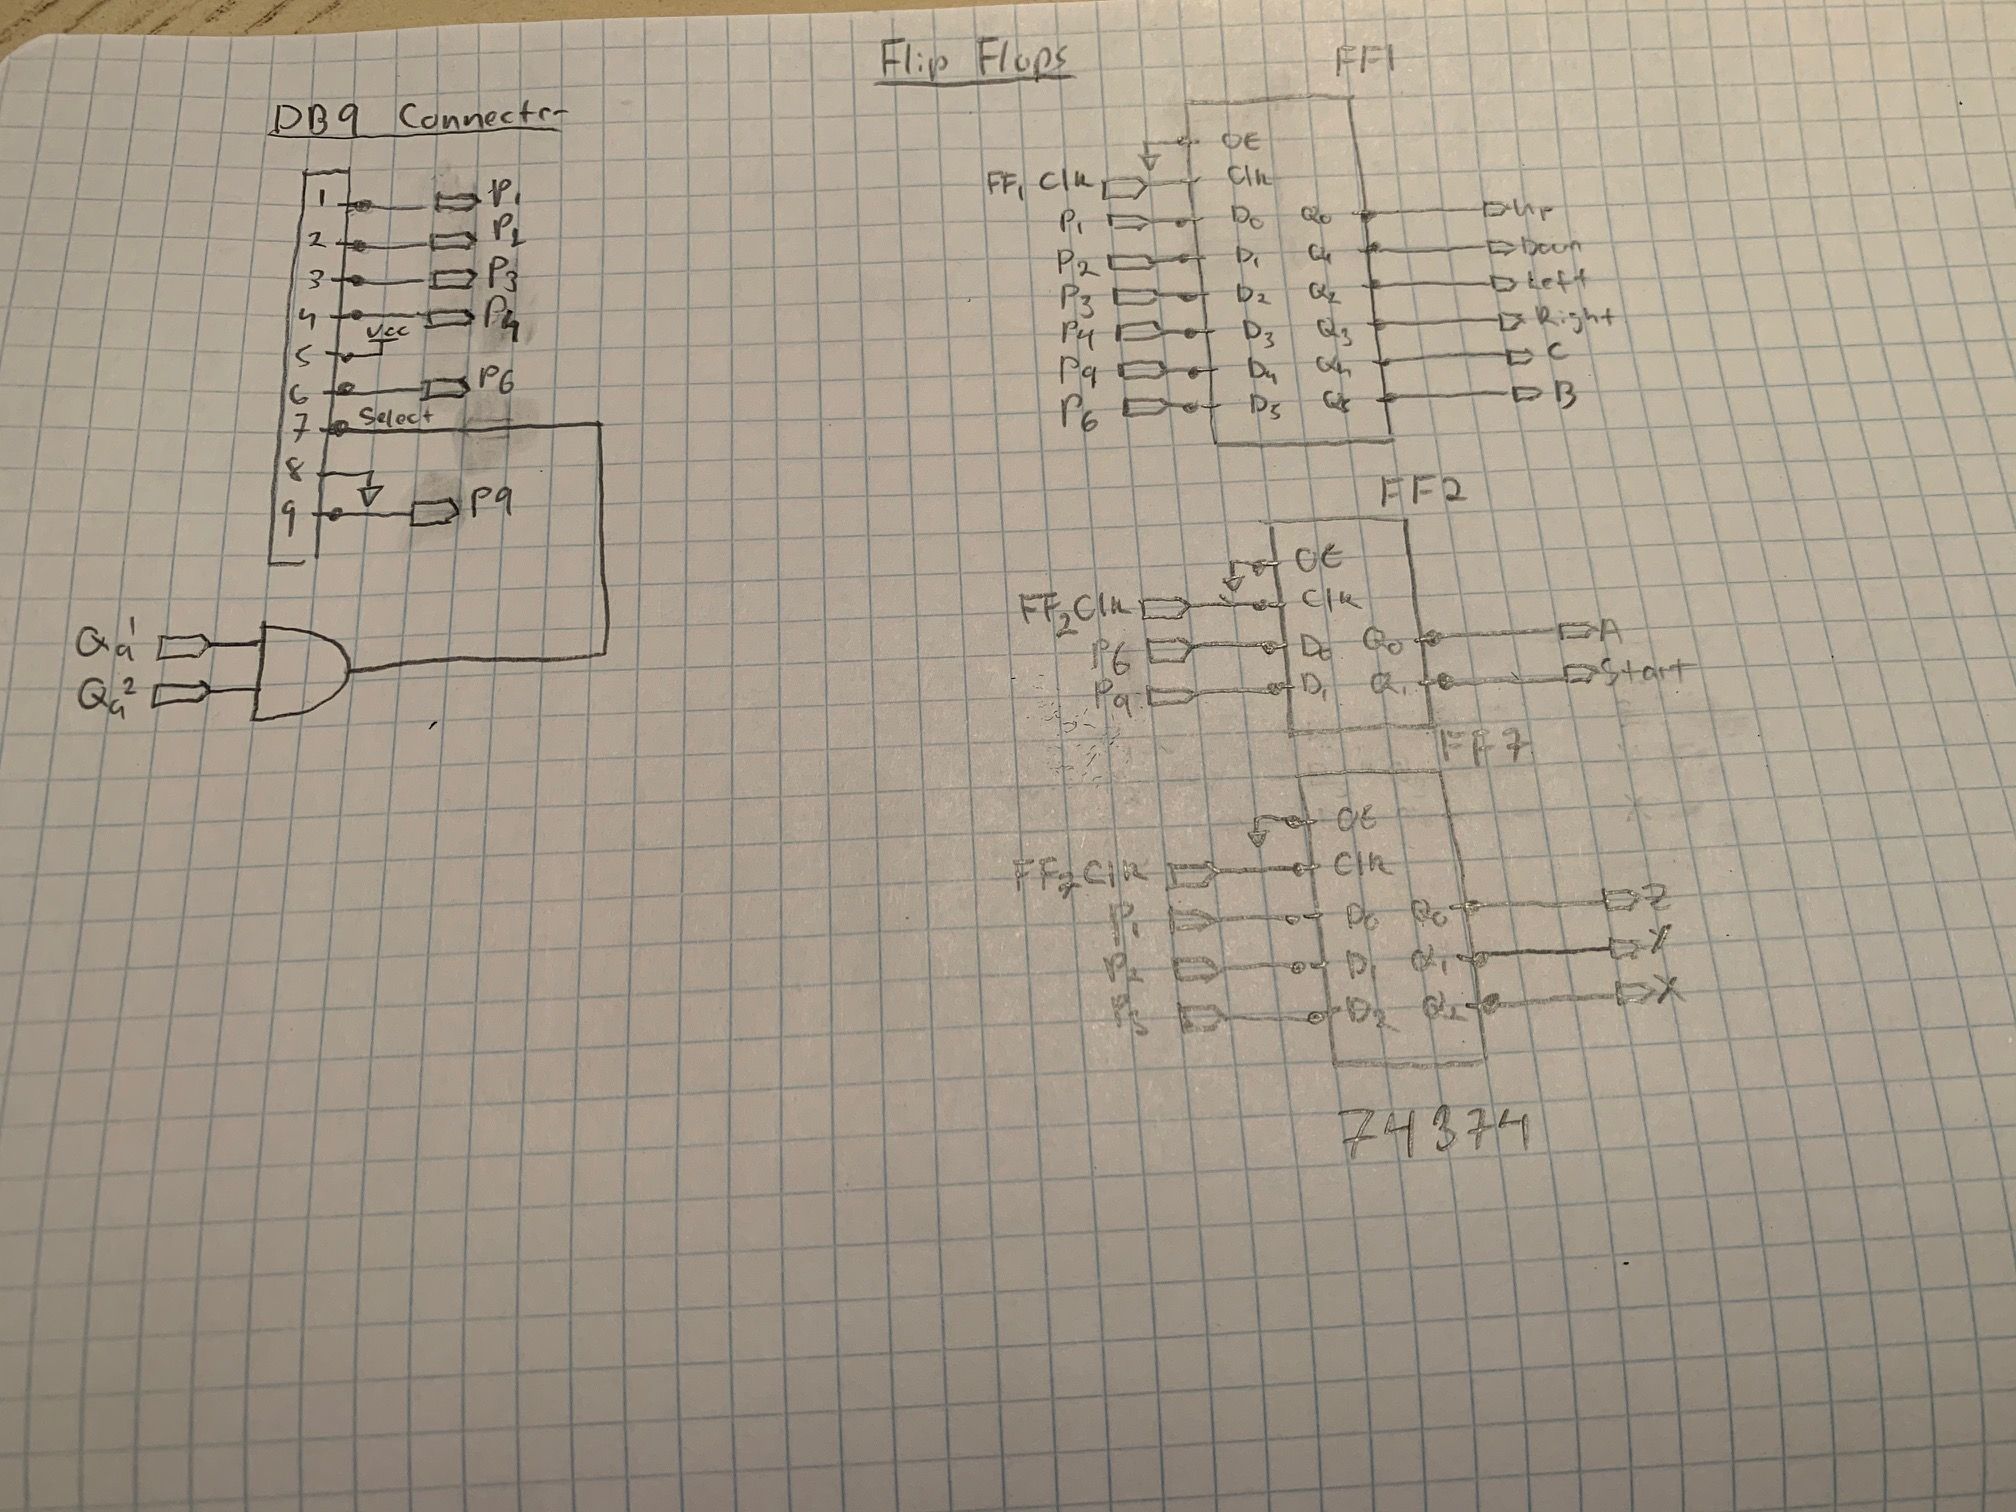 Flip Flops
FF1
DB9 Connectr
1 P1
2 P2
3 P3
4 P4
Vcc
5
6 P6
7 Select
8
9 P9
Qa1
Qa2
OE
FF1 Clk Clk
P1 D0 Q0 Up
P2 D1 Q1 Down
P3 D2 Q2 Left
P4 D3 Q3 Right
P9 D4 Q4 C
P6 D5 Q5 B
FF2
OE
FF2 Clk Clk
P6 D0 Q0 A
P9 D1 Q1 Start
FF7
OE
FF7 Clk Clk
P1 D0 Q0 Z
P2 D1 Q1 Y
P3 D2 Q2 X
74374